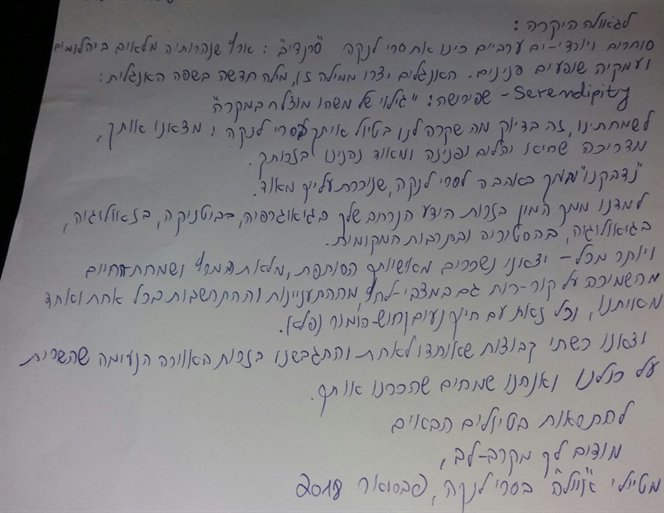 לגאולה היקרה:
סוחרים ויורדי-ים ערביים כינו את סרי לנקה "סרנדיב": ארץ שנהרותיה מלאים ביהלומים
ועמקיה שופעים פנינים. האנגלים יצרו ממילה זו, מלה חדשה בשפה האנגלית:
Serendipity - שפירושה: "גילוי של משהו מוצלח במקרה"
לשמחתינו, זה בדיוק מה שקרה לנו בטיול איתך לסרי לנקה: מצאנו אותך,
מדריכה שהיא יהלום ופנינה ומאוד נהנינו בזכותך.
"נדבקנו" ממך באהבה לסרי לנקה, שניכרת עליך מאוד.
למדנו ממך המון בזכות הידע הנרחב שלך בגיאוגרפיה, בבוטניקה, בזואולוגיה,
בגיאולוגיה, בהסטוריה ובתרבות המקומית.
ויותר מכל - יצאנו נשכרים מאישיותך הסוחפת, מלאת המרץ ושמחת החיים
מהשמירה על קור-רוח גם במצבי-לחץ מההתעניינות וההתחשבות בכל אחת ואחד
מאיתנו, וכל זאת עם חיוך נעים וחוש-הומור נפלא.
יצאנו כשתי קבוצות שאוחדו לאחת והתגבשנו בזכות האווירה הנעימה שהשרית
על כולנו ואנחנו שמחים שהכרנו אותך.
להתראות בטיולים הבאים
מודים לך מקרב-לב,
מטיילי "איילה" בסרי לנקה, פברואר 2018